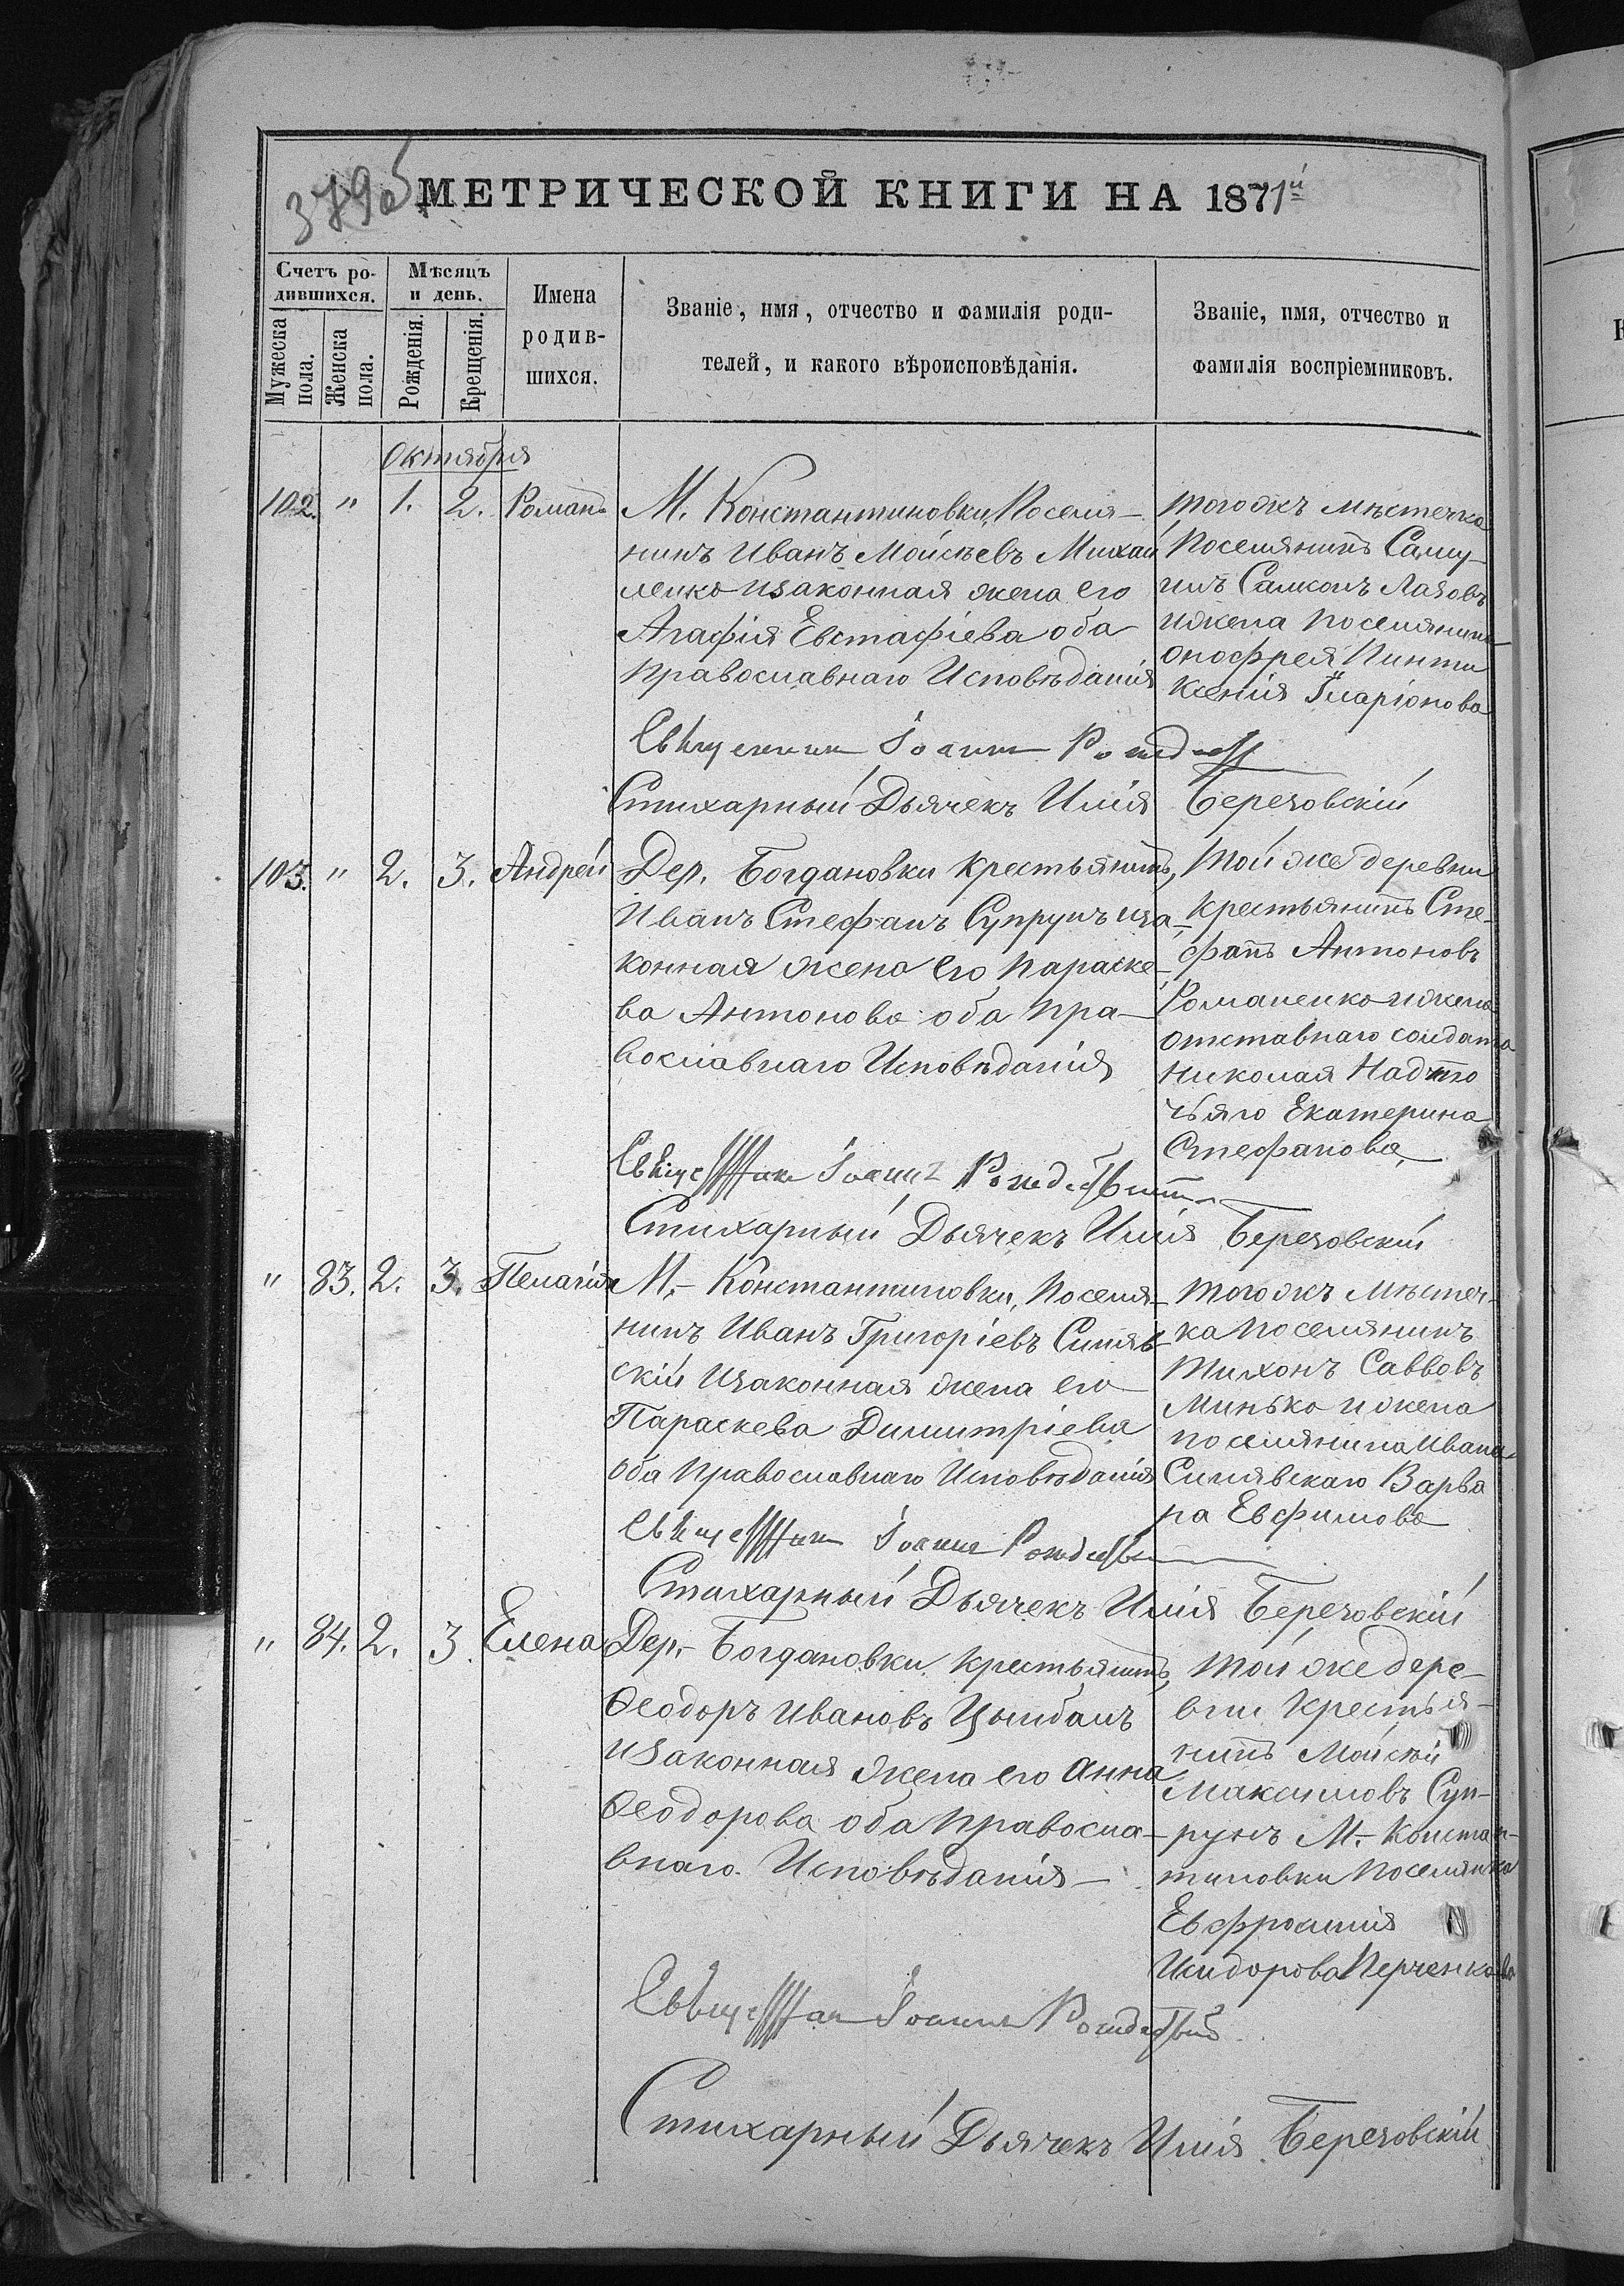 379об
МЕТРИЧЕСКОЙ КНИГИ НА 1871й
Счетъ ро-
дившихся.
Мужеска
пола.
Женска
пола.
Мѣсяцъ
и день.
Рожденія.
Крещенія.
Имена
родив-
шихся.
Званіе, имя, отчество и фамилія роди-
телей, и какого вѣроисповѣданія.
Званіе, имя, отчество и
фамилія воспріемниковъ.
Октября
102. " 1. 2. Романъ
М. Константиновки, Поселя-
нинъ Иванъ Мойсѣевъ Михай
ленко изаконная жена его
Агафія Евстафіева оба
Православнаго Исповѣданія
тогожъ мѣстечка
Поселянинъ Саму-
илъ
ижена поселянина
онофрея Пинти
Ксенія Иларіонова
Священникъ Іоаннъ
Стихарный Дьячекъ Илія Березовскій
103. " 2. 3. Андрей
Дер. Богдановки крестьянинъ,
Иванъ Стефанъ Супрунъ иза-
конная жена его Параске-
ва Антонова оба Пра-
вославнаго Исповѣданія
той же деревни
крестьянинъ Сте-
фанъ Антоновъ
Романенко ижена
отставнаго солдата
Николая Надто
чьяго Екатерина
Стефанова
Священникъ Іоаннъ
Стихарный Дьячекъ Илія Березовскій
" 83. 2. 3. Пелагія
М.- Константиновки, Поселя-
нинъ Иванъ Григоріевъ Синяв-
скій изаконная жена его
Параскева Димитріева
оба Православнаго Исповѣданія
тогожъ мѣстеч-
ка поселянинъ
Тихонъ Саввовъ
Минько ижена
поселянина Ивана
Синявскаго Варва
ра Евфимова
Священникъ Іоаннъ
Стихарный Дьячекъ Илія Березовскій
" 84. 2. 3. Елена
Дер.- Богдановки крестьянинъ,
Ѳеодоръ Ивановъ Цымбалъ
изаконная жена его Анна
Ѳеодорова оба Правосла-
внаго Исповѣданія
той же дере-
вни Крестья-
нинъ Мойсѣй
Максимовъ Суп-
рунъ М.- Констан-
тиновки Поселянка
Евфросинія
Исидорова Перченкова
Священникъ Іоаннъ
Стихарный Дьячекъ Илія Березовскій